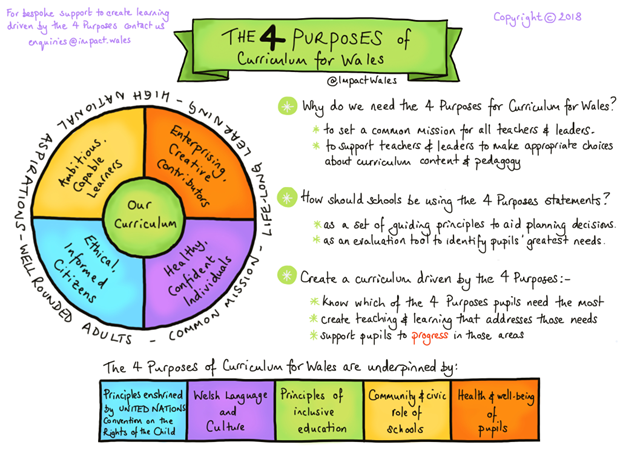 For bespoke support to create learning
driven by the 4 Purposes contact us
enquiries@impact.wales
Copyright © 2018
THE 4 PURPOSES of
Curriculum for Wales
@ImpactWales
HIGH NATIONAL ASPIRATIONS - WELL ROUNDED ADULTS - COMMON MISSION - LIFE-LONG LEARNING -
Ambitious,
Capable
Learners
Enterprising,
Creative
Contributors
Our
Curriculum
Ethical,
Informed
Citizens
Healthy,
Confident
Individuals
Why do we need the 4 Purposes for Curriculum for Wales?
* to set a common mission for all teachers & leaders.
* to support teachers & leaders to make appropriate choices
about curriculum content & pedagogy
How should schools be using the 4 Purposes statements?
* as a set of guiding principles to aid planning decisions.
* as an evaluation tool to identify pupils' greatest needs.
Create a curriculum driven by the 4 Purposes:-
* know which of the 4 Purposes pupils need the most
* create teaching & learning that addresses those needs
* support pupils to progress in those areas
The 4 Purposes of Curriculum for Wales are underpinned by:
Principles enshrined
by UNITED NATIONS
Convention on the
Rights of the Child
Welsh Language
and
Culture
Principles of
inclusive
education
Community & civic
role of
schools
Health & well-being
of
pupils